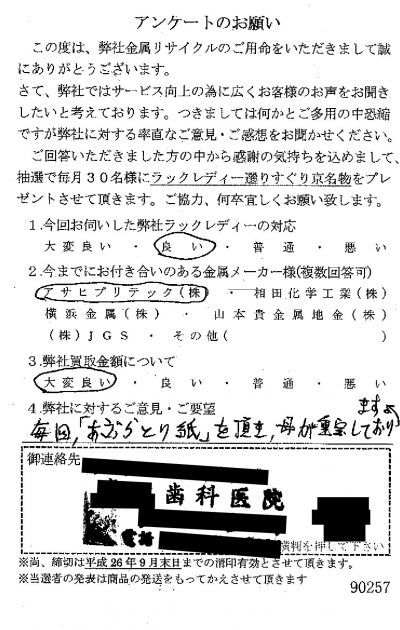 アンケートのお願い
この度は、弊社金属リサイクルのご用命をいただきまして誠
にありがとうございます。
さて、弊社ではサービス向上の為に広くお客様のお声をお聞き
したいと考えております。つきましては何かとご多用の中恐縮
ですが弊社に対する率直なご意見・ご感想をお聞かせください。
ご回答いただきました方の中から感謝の気持ちを込めまして、
抽選で毎月30名様にラックレディー選りすぐり京名物をプレ
ゼントさせて頂きます。ご協力、何卒宜しくお願い致します。
1.今回お伺いした弊社ラックレディーの対応
大変良い・良い・普通・悪い
2.今までにお付き合いのある金属メーカー様(複数回答可)
アサヒプリテック(株)・相田化学工業(株)
横浜金属(株)・山本貴金属地金(株)
(株)JGS・その他( )
3.弊社買取金額について
大変良い・良い・普通・悪い
4.弊社に対するご意見・ご要望
毎回,「あぶらとり紙」を頂き,母が重宝しており
ます。
御連絡先
歯科医院
横判を押して下さい
※尚、締切は平成26年9月末日までの消印有効とさせて頂きます。
※当選者の発表は商品の発送をもってかえさせて頂きます
90257